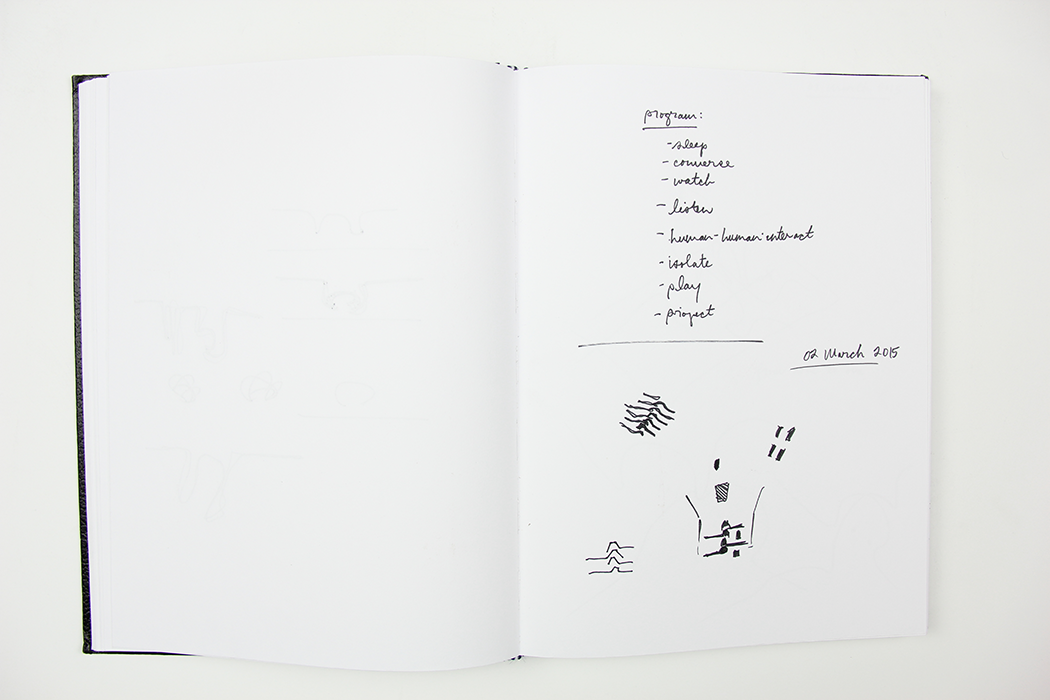 program:
- sleep
- converse
- watch
- listen
- human-human interact
- isolate
- play
- project
02 March 2015